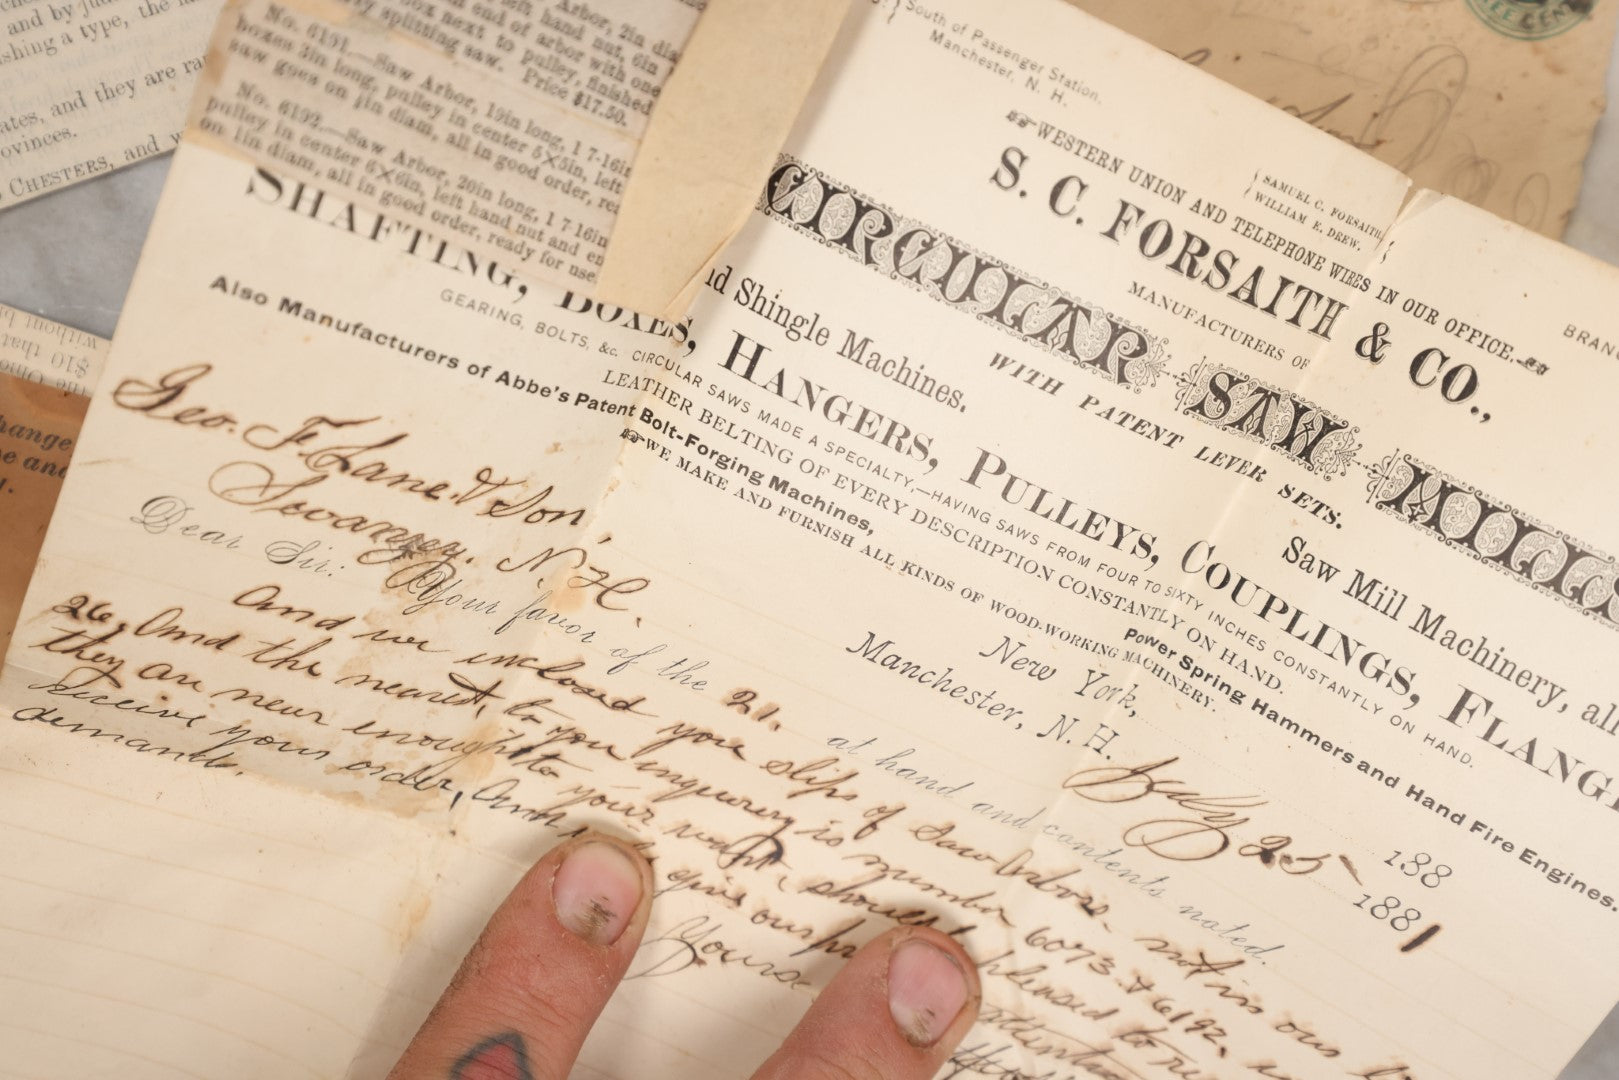 and by
shing a type, the
ates, and they are
ovinces.
CHESTERS, and
without
$10
that
hange
e and
No. 6191.—Saw Arbor, 19in long, 1 7-16in
boxes 3in long, pulley in center 5×5in, left
saw goes on 1in diam, all in good order,
No. 6192.—Saw Arbor, 20in long, 1 7-16in
pulley in center 6×6in, left hand nut and
on 1in diam, all in good order, ready for use
left hand nut, 6in
end of arbor with one
box next to pulley, finished
splitting saw. Price $17.50.
THREE CENTS
South of Passenger Station,
Manchester, N. H.
WESTERN UNION AND TELEPHONE WIRES IN OUR OFFICE.
SAMUEL C. FORSAITH,
WILLIAM E. DREW.
S. C. FORSAITH & CO.,
MANUFACTURERS OF
CIRCULAR SAW MILLS
WITH PATENT LEVER SETS.
Saw Mill Machinery, all
nd Shingle Machines.
SHAFTING, BOXES, HANGERS, PULLEYS, COUPLINGS, FLANG
GEARING, BOLTS, &c. CIRCULAR SAWS MADE A SPECIALTY,—HAVING SAWS FROM FOUR TO SIXTY INCHES CONSTANTLY ON HAND.
LEATHER BELTING OF EVERY DESCRIPTION CONSTANTLY ON HAND.
Also Manufacturers of Abbe's Patent Bolt-Forging Machines, Power Spring Hammers and Hand Fire Engines.
WE MAKE AND FURNISH ALL KINDS OF WOOD-WORKING MACHINERY.
New York, 188
Manchester, N. H. July 25 1881
Geo. F. Lane & Son,
Swanzey. N. H.
Dear Sir: Your favor of the 21. at hand and contents noted.
And we inclosed you slips of Saw Arbors. not in our
26. And the nearest, to you inquiry is number 6073. & 6192.
they are near enough to your want. should pleased to
receive your order, And give our
demands.
Yours